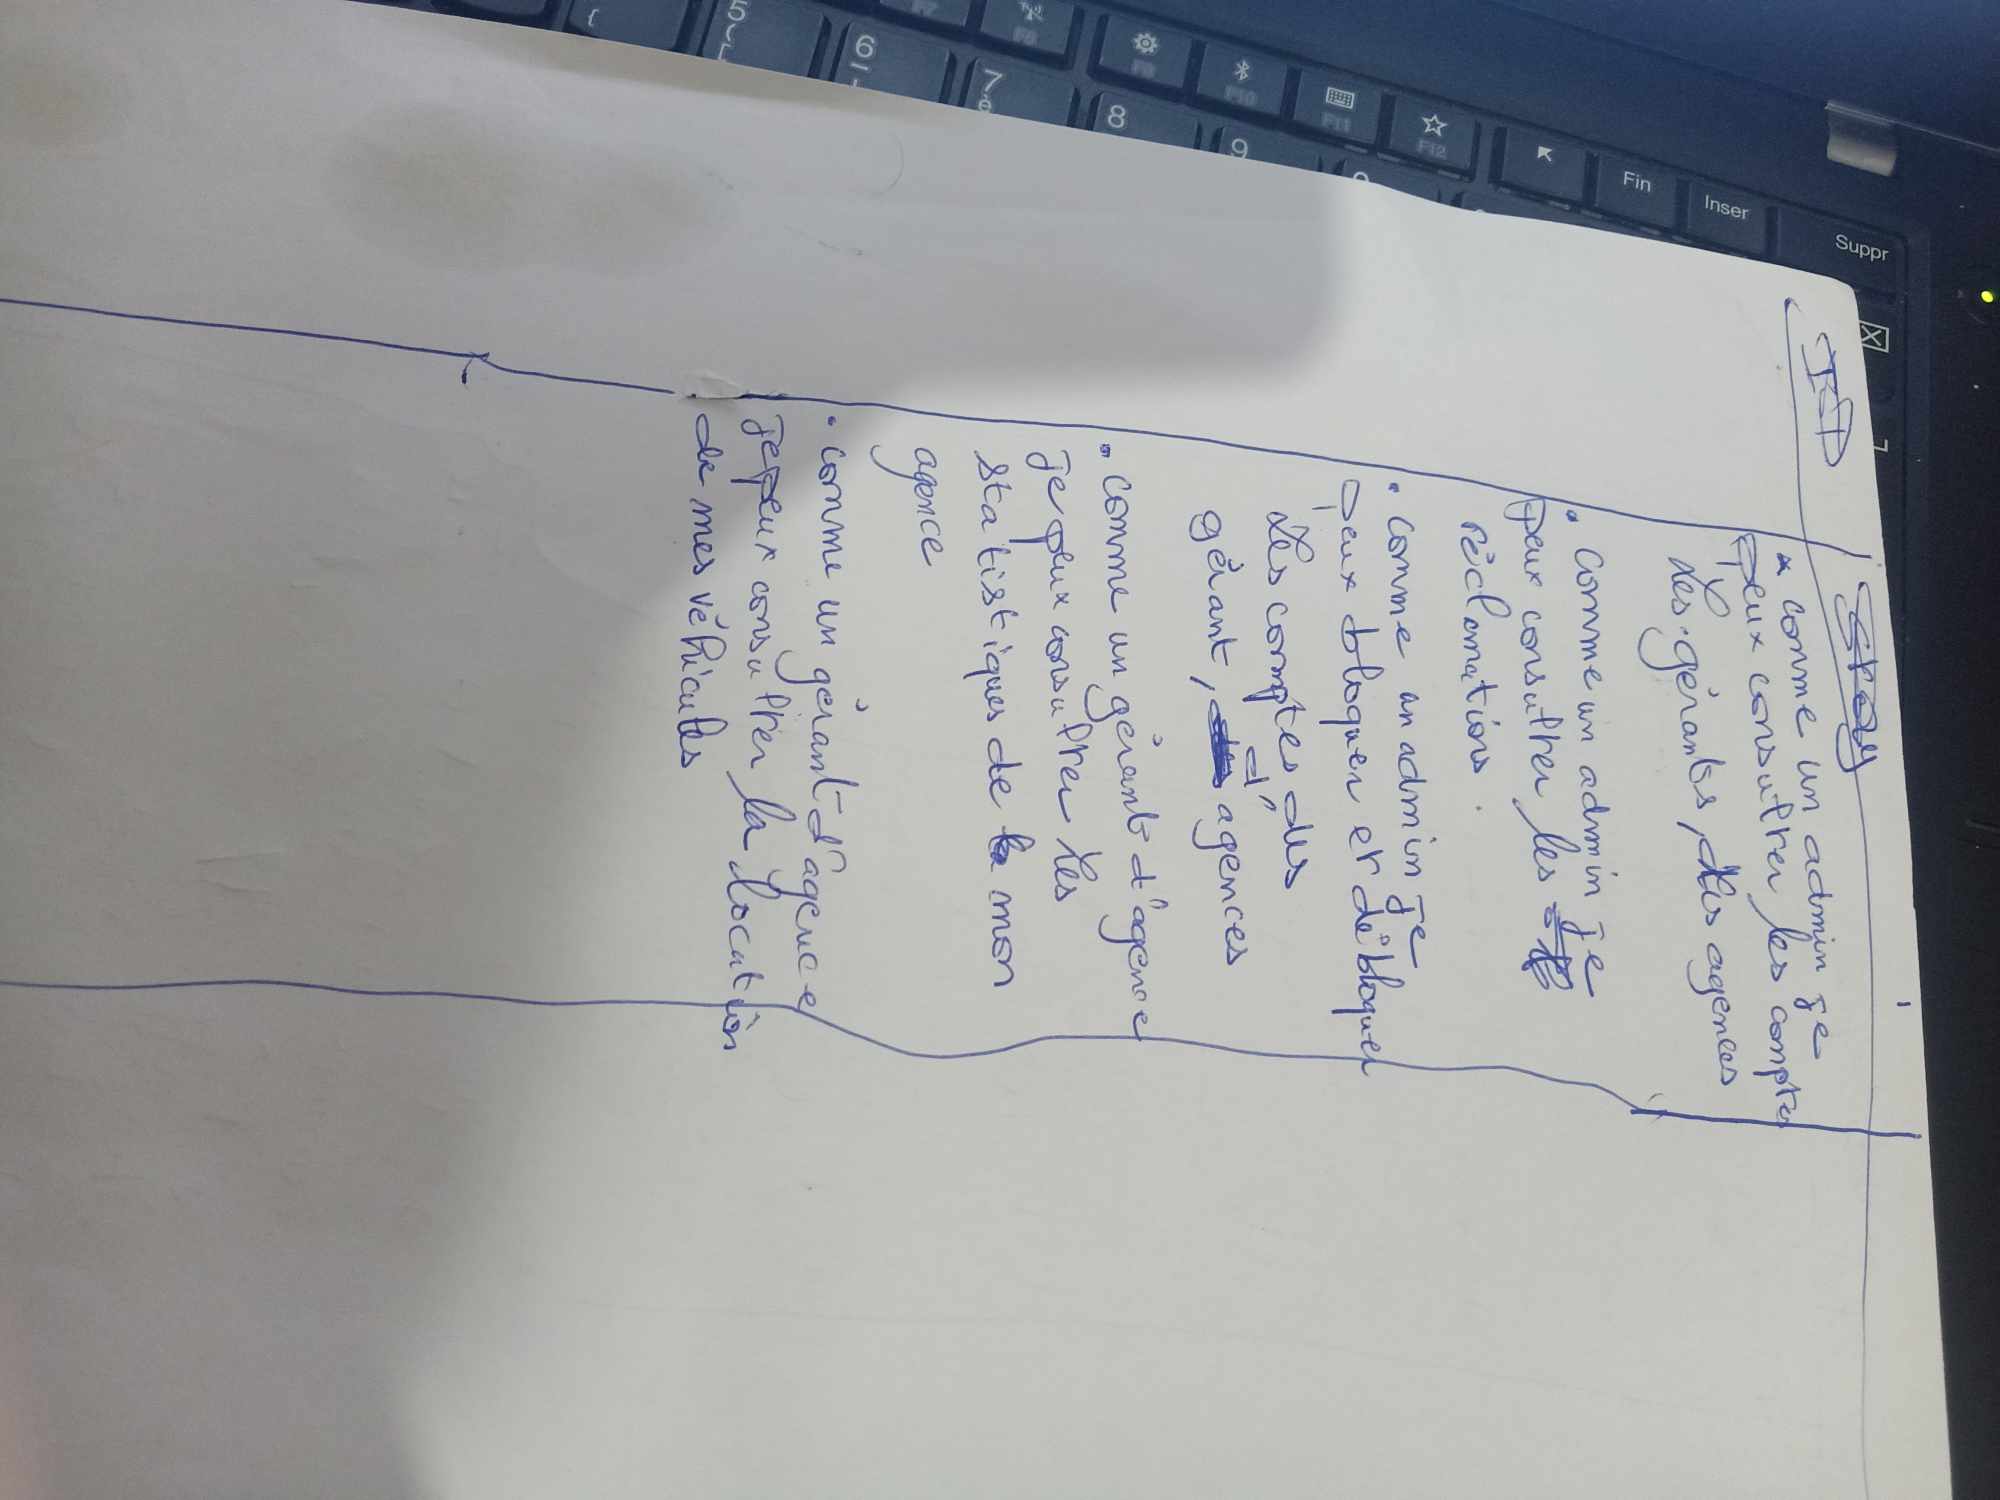 Suppr
Inser
Fin
F12
F11
F10
9
8
7
è
6
5
(
{
ID
Story
* comme un admin je
peux consulter les comptes
Les gérants, des agences
. comme un admin je
peux consulter les
réclamations .
. comme un admin je
peux bloquer et débloquer
Les comptes des
gérant, d' agences
. comme un gérant d'agence
je peux consulter Les
statistiques de mon
agence
. comme un gérant d'agence
je peux consulter la location
de mes véhicules